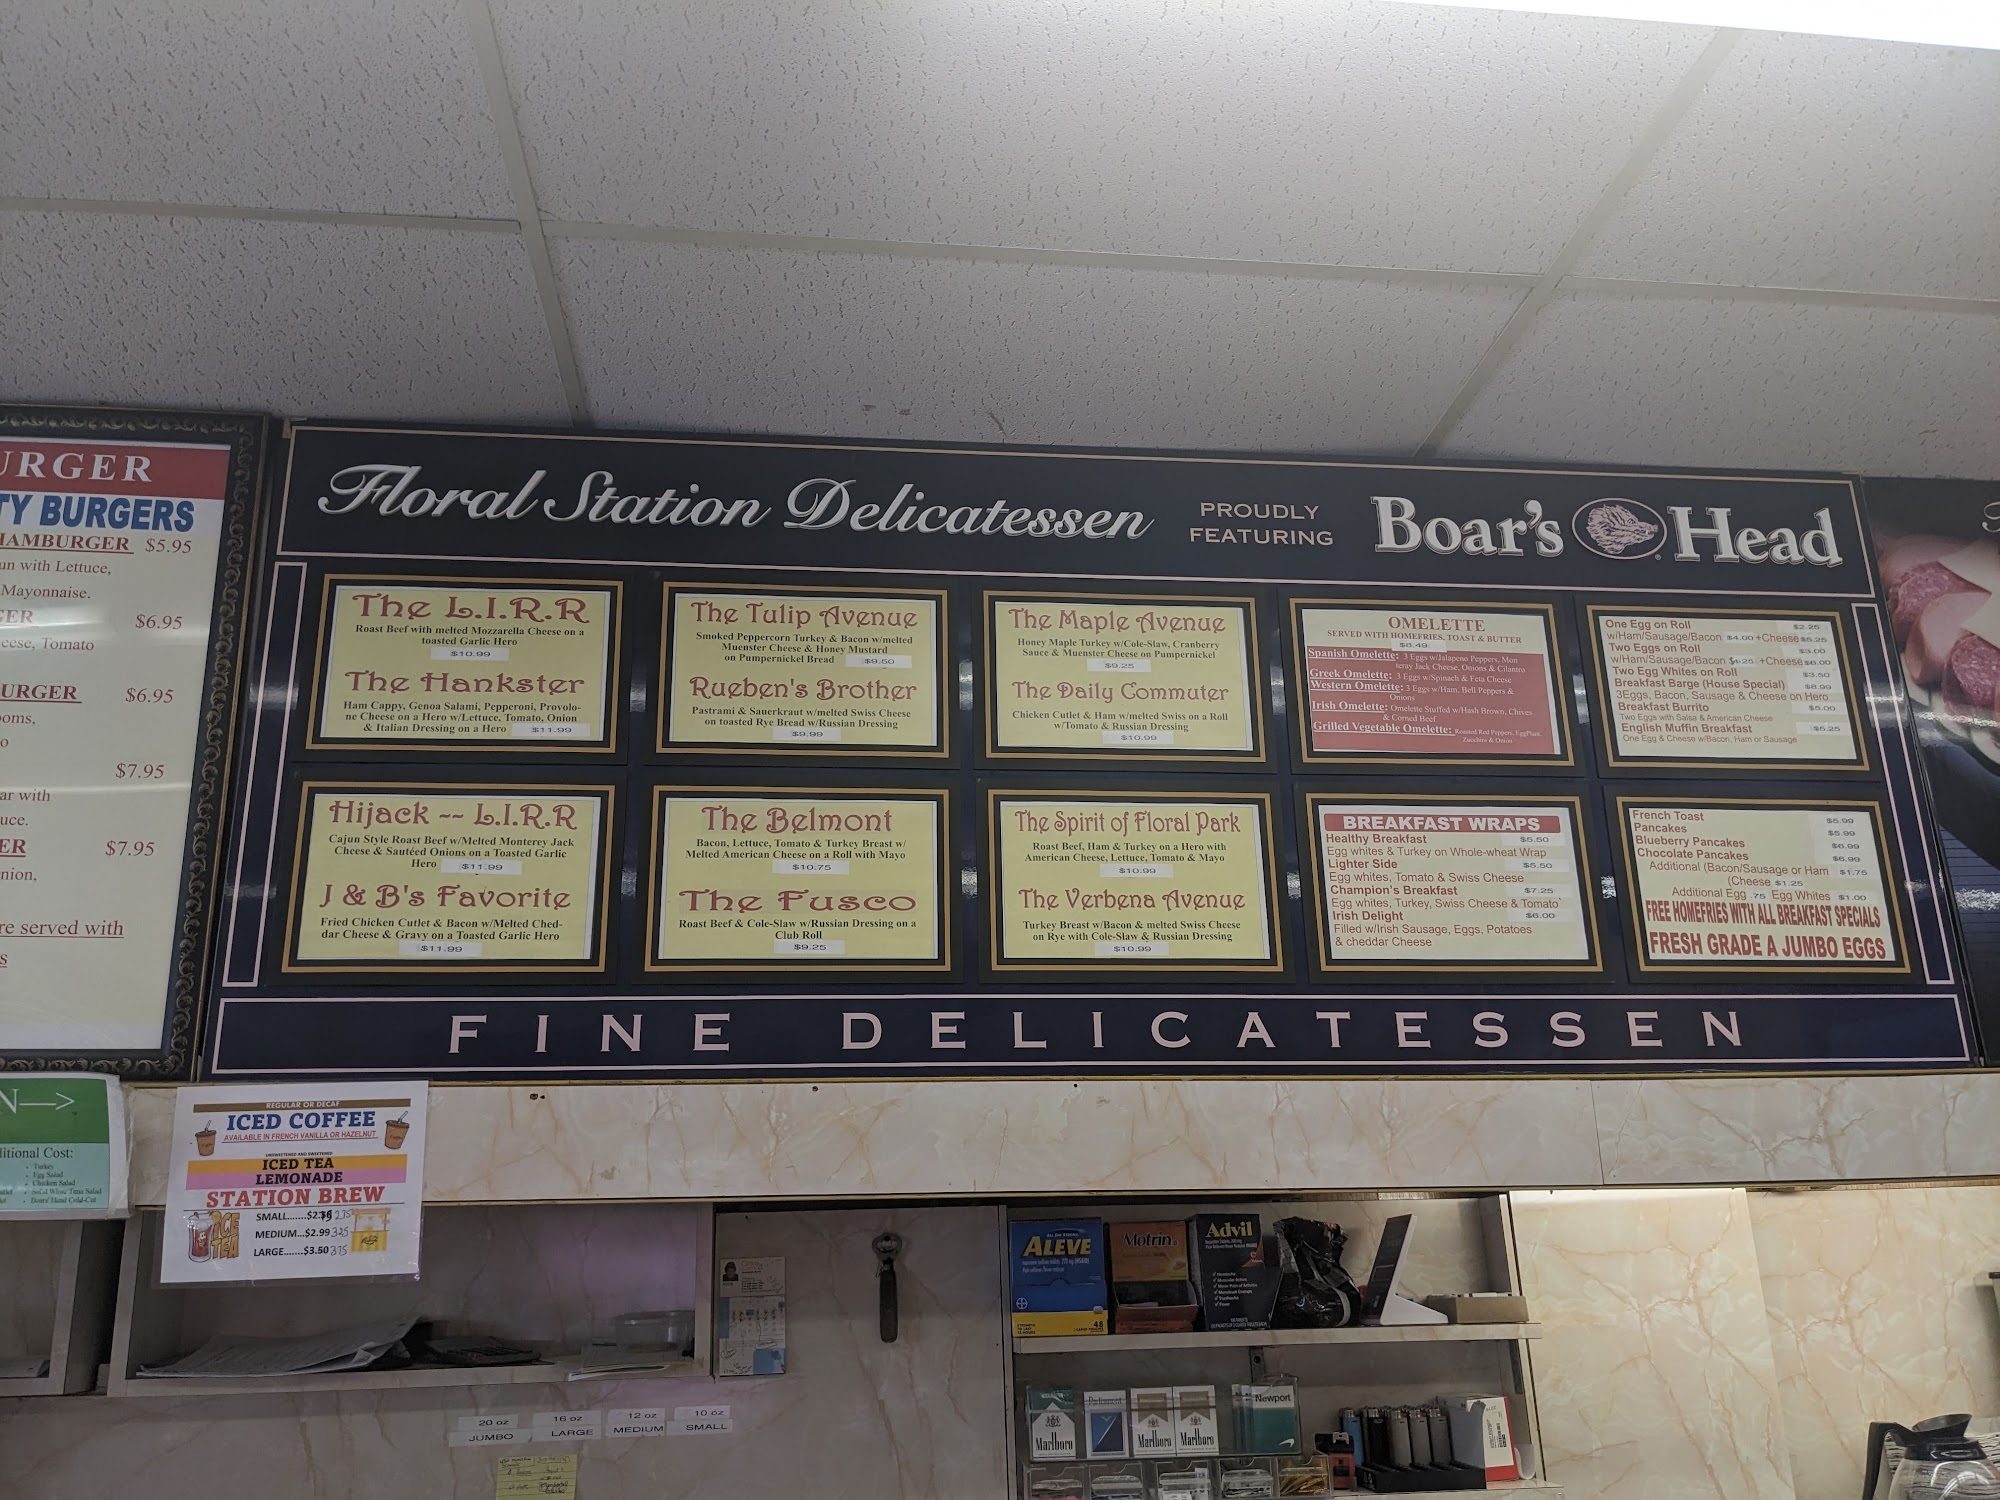 URGER
TY BURGERS
HAMBURGER $5.95
un with Lettuce,
Mayonnaise.
GER $6.95
eese, Tomato
URGER $6.95
ooms,
o
$7.95
ar with
uce.
ER $7.95
nion,
re served with
s
Floral Station Delicatessen
PROUDLY
FEATURING
Boar's Head
The L.I.R.R
Roast Beef with melted Mozzarella Cheese on a
toasted Garlic Hero
$10.99
The Hankster
Ham Cappy, Genoa Salami, Pepperoni, Provolo-
ne Cheese on a Hero w/Lettuce, Tomato, Onion
& Italian Dressing on a Hero $11.99
The Tulip Avenue
Smoked Peppercorn Turkey & Bacon w/melted
Muenster Cheese & Honey Mustard
on Pumpernickel Bread $9.50
Rueben's Brother
Pastrami & Sauerkraut w/melted Swiss Cheese
on toasted Rye Bread w/Russian Dressing
$9.99
The Maple Avenue
Honey Maple Turkey w/Cole-Slaw, Cranberry
Sauce & Muenster Cheese on Pumpernickel
$9.25
The Daily Commuter
Chicken Cutlet & Ham w/melted Swiss on a Roll
w/Tomato & Russian Dressing
$10.99
OMELETTE
SERVED WITH HOMEFRIES, TOAST & BUTTER
$8.49
Spanish Omelette: 3 Eggs w/Jalapeno Peppers, Mon
teray Jack Cheese, Onions & Cilantro
Greek Omelette: 3 Eggs w/Spinach & Feta Cheese
Western Omelette: 3 Eggs w/Ham, Bell Peppers &
Onions
Irish Omelette: Omelette Stuffed w/Hash Brown, Chives
& Corned Beef
Grilled Vegetable Omelette: Roasted Red Peppers, EggPlant,
Zucchini & Onion
One Egg on Roll $2.25
w/Ham/Sausage/Bacon $4.00 +Cheese $5.25
Two Eggs on Roll $3.00
w/Ham/Sausage/Bacon +Cheese $6.00
Two Egg Whites on Roll $3.50
Breakfast Barge (House Special) $8.99
3Eggs, Bacon, Sausage & Cheese on Hero
Breakfast Burrito $5.00
Two Eggs with Salsa & American Cheese
English Muffin Breakfast $5.25
One Egg & Cheese w/Bacon, Ham or Sausage
Hijack -- L.I.R.R
Cajun Style Roast Beef w/Melted Monterey Jack
Cheese & Sautéed Onions on a Toasted Garlic
Hero $11.99
J & B's Favorite
Fried Chicken Cutlet & Bacon w/Melted Ched-
dar Cheese & Gravy on a Toasted Garlic Hero
$11.99
The Belmont
Bacon, Lettuce, Tomato & Turkey Breast w/
Melted American Cheese on a Roll with Mayo
$10.75
The Fusco
Roast Beef & Cole-Slaw w/Russian Dressing on a
Club Roll
$9.25
The Spirit of Floral Park
Roast Beef, Ham & Turkey on a Hero with
American Cheese, Lettuce, Tomato & Mayo
$10.99
The Verbena Avenue
Turkey Breast w/Bacon & melted Swiss Cheese
on Rye with Cole-Slaw & Russian Dressing
$10.99
BREAKFAST WRAPS
Healthy Breakfast $5.50
Egg whites & Turkey on Whole-wheat Wrap
Lighter Side $5.50
Egg whites, Tomato & Swiss Cheese
Champion's Breakfast $7.25
Egg whites, Turkey, Swiss Cheese & Tomato
Irish Delight $6.00
Filled w/Irish Sausage, Eggs, Potatoes
& cheddar Cheese
French Toast $5.99
Pancakes $5.99
Blueberry Pancakes $6.99
Chocolate Pancakes $6.99
Additional (Bacon/Sausage or Ham $1.75
(Cheese $1.25
Additional Egg .75 Egg Whites $1.00
FREE HOMEFRIES WITH ALL BREAKFAST SPECIALS
FRESH GRADE A JUMBO EGGS
FINE DELICATESSEN
N
ditional Cost:
Turkey
Egg Salad
Chicken Salad
Solid White Tuna Salad
Boars' Head Cold-Cut
REGULAR OR DECAF
ICED COFFEE
AVAILABLE IN FRENCH VANILLA OR HAZELNUT
UNSWEETENED AND SWEETENED
ICED TEA
LEMONADE
STATION BREW
ICE
TEA
SMALL.......
MEDIUM...$2.99 3.25
LARGE.......$3.50 3.75
20 oz
JUMBO
16 oz
LARGE
12 oz
MEDIUM
10 oz
SMALL
ALEVE
48
Motrin
Advil
Marlboro
Parliament
Marlboro
Marlboro
Newport